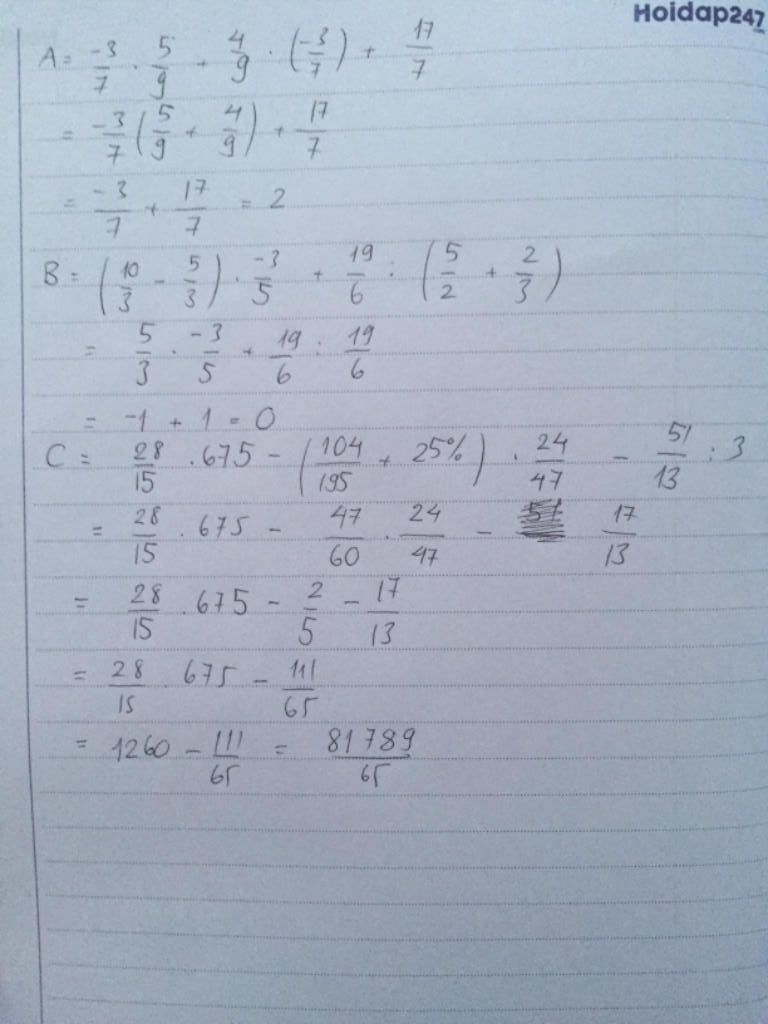 Hoidap247
A = -3/7 . 5/9 + 4/9 . (-3/7) + 17/7
= -3/7 (5/9 + 4/9) + 17/7
= -3/7 + 17/7 = 2
B = (10/3 - 5/3) . -3/5 + 19/6 : (5/2 + 2/3)
= 5/3 . -3/5 + 19/6 : 19/6
= -1 + 1 = 0
C = 28/15 . 675 - (104/195 + 25%) . 24/47 - 51/13 : 3
= 28/15 . 675 - 47/60 . 24/47 - 17/13
= 28/15 . 675 - 2/5 - 17/13
= 28/15 . 675 - 111/65
= 1260 - 111/65 = 81789/65